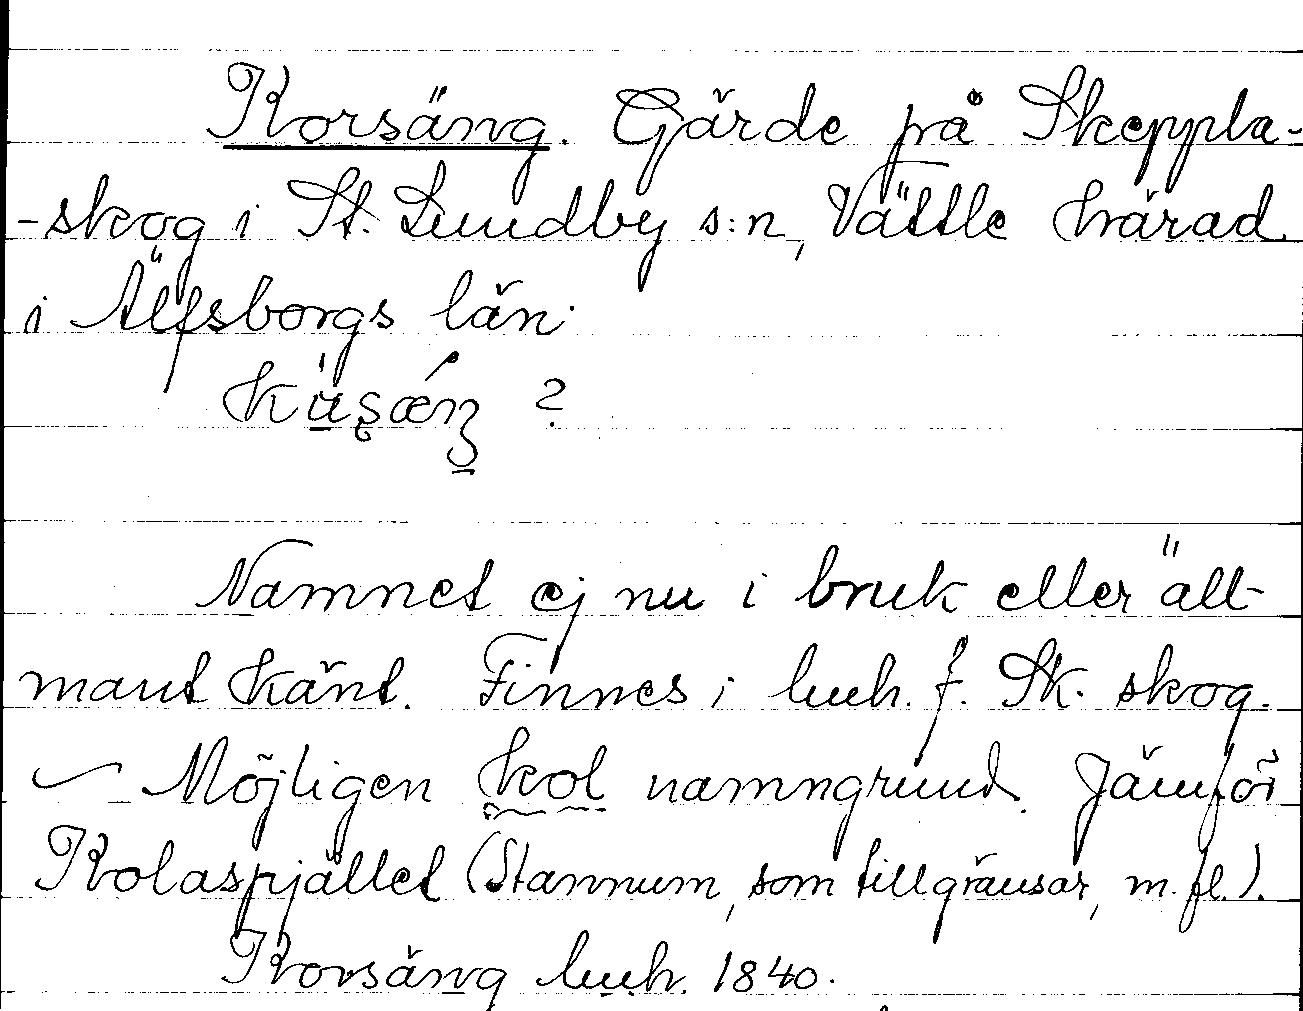 Korsäng. Gärde på Skeppla-
-skog i St. Lundby s:n, Vättle härad
i Älfsborgs län.
?
Namnet ej nu i bruk eller all-
mant känt. Finnes i luh. f. Sk. skog.
– Möjligen kol namngrund. Jämför
Kolaspjället (Stannum, som tillgränsar, m. fl.).
Korsäng luh. 1840.